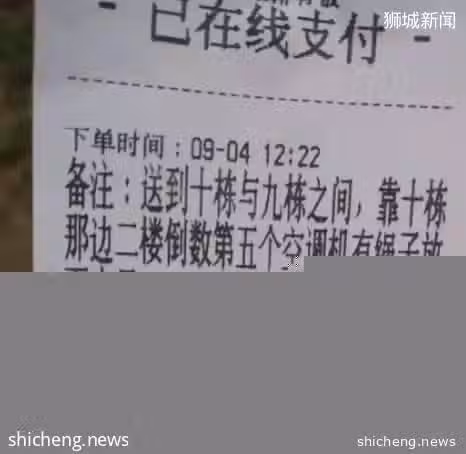 狮城新闻
- 已在线支付 -
下单时间：09-04 12:22
备注：送到十栋与九栋之间，靠十栋
那边二楼倒数第五个空调机有绳子放
shicheng.news
shicheng.news